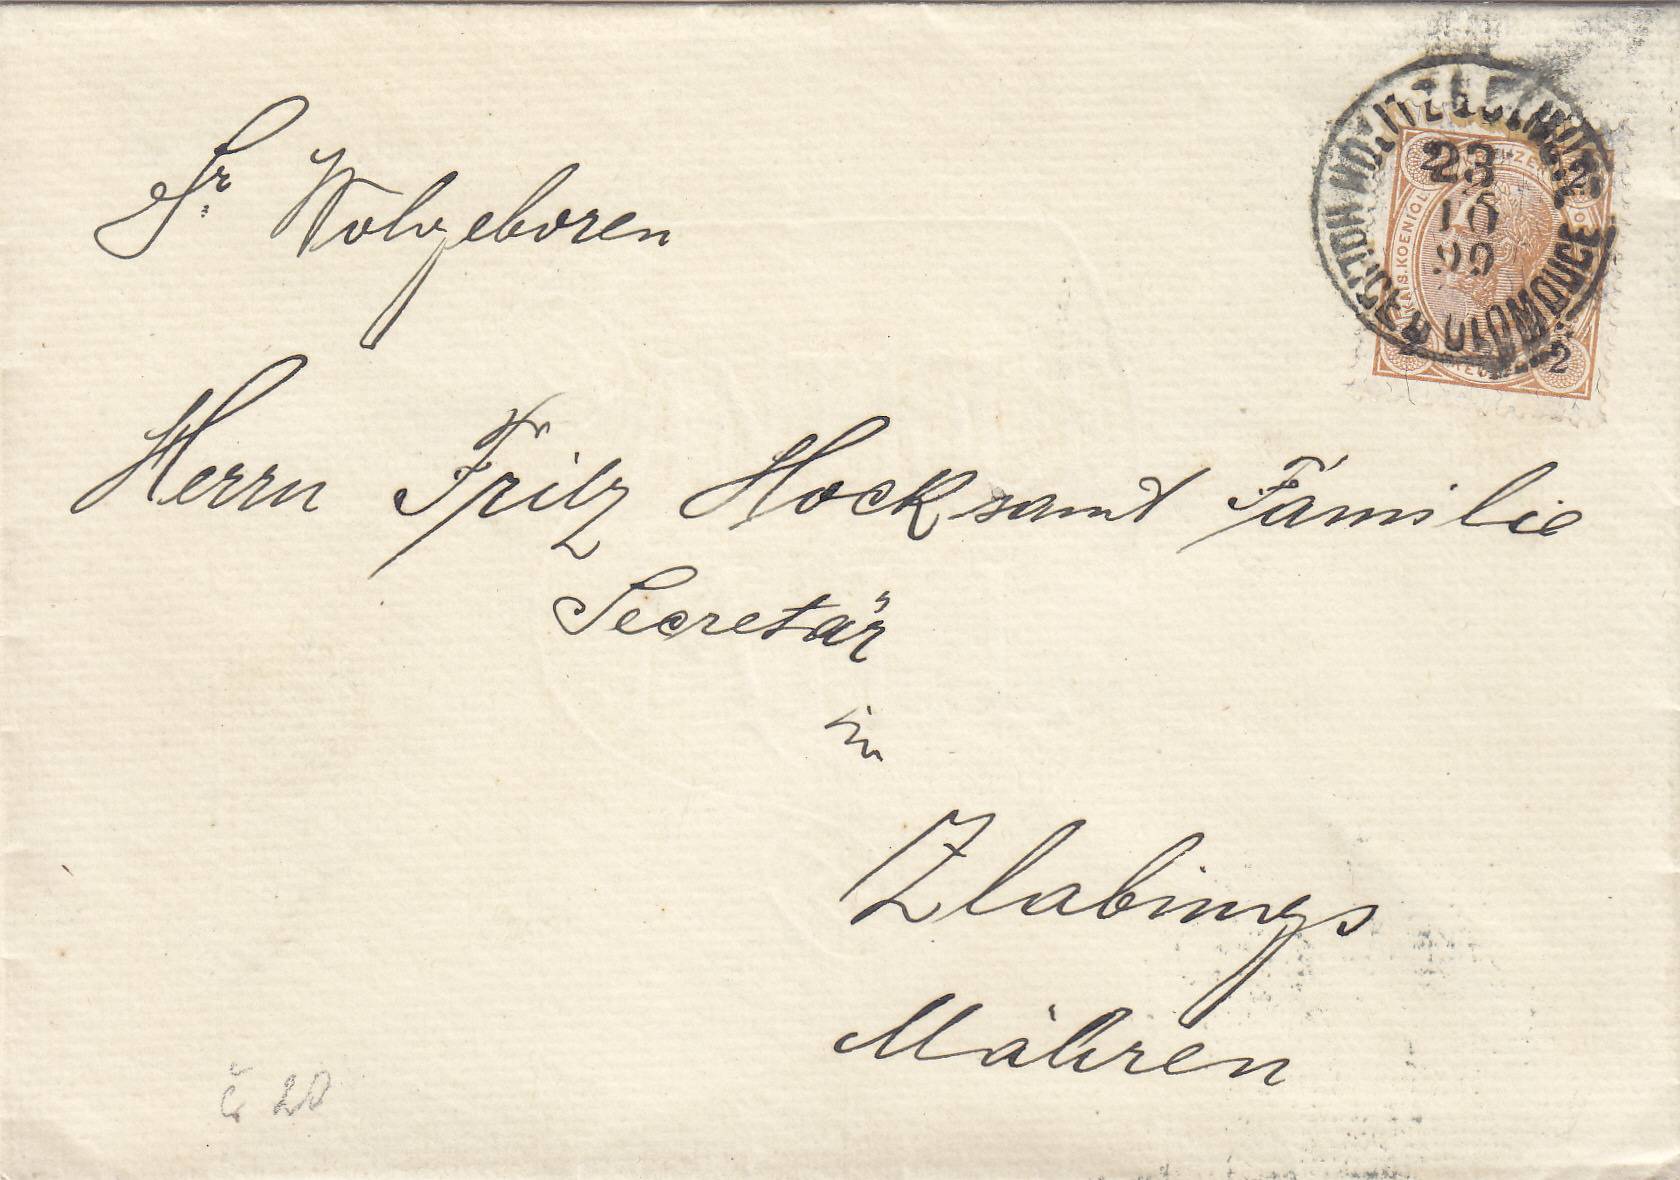 Sr Wolgeboren
Herrn Fritz Hock samt Familie
Secretär
in
Zlabings
Mähren
č 20
23
10
99
KAIS.KOENIGL
2
2
2